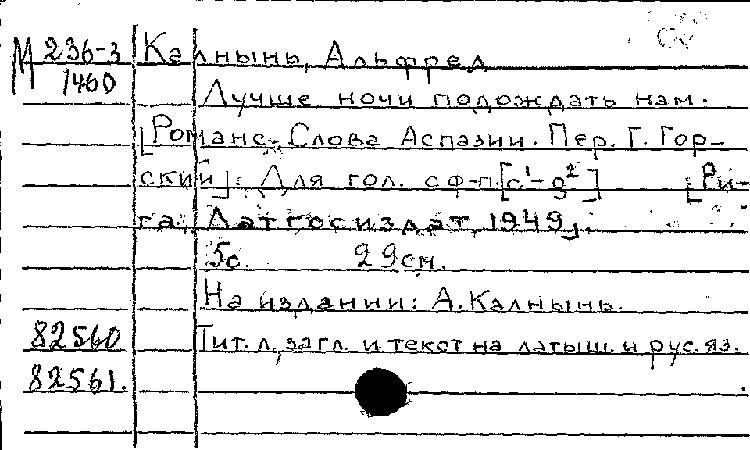 М 236-3 Калнынь, Альфред
1460
Лучше ночи подождать нам.
[Романс. Слова Аспазии. Пер. Г. Гор-
ский]. Для гол. с ф-п. [c¹-g²] [Ри-
га, Латгосиздат, 1949].
5с. 29см.
На издании: А. Калнынь.
82560 Тит. л., загл. и текст на латыш. и рус. яз.
82561.